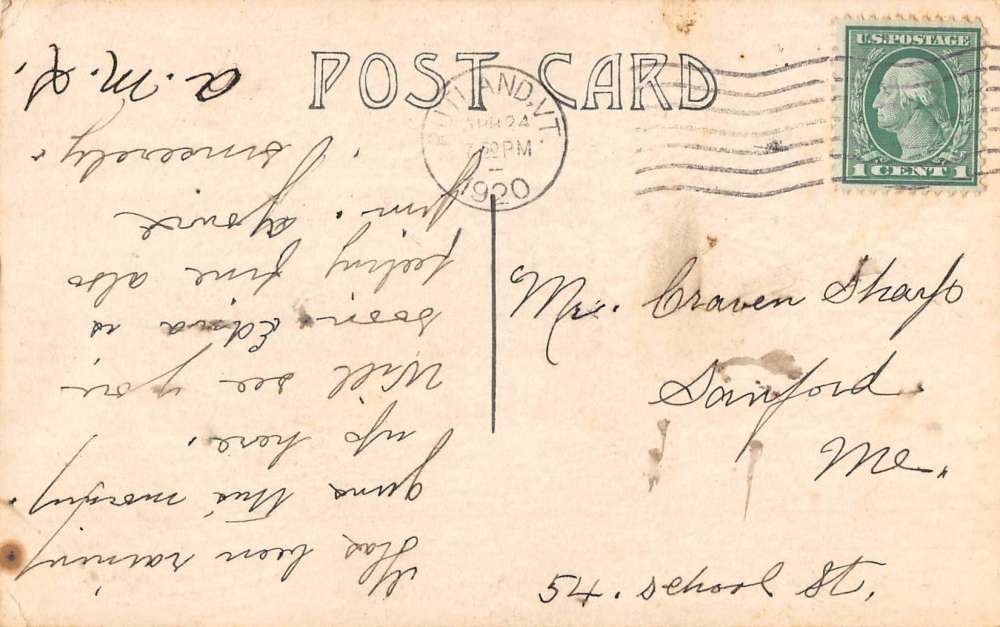 POST CARD
RUTLAND, VT.
APR 24
PM
1920
U.S. POSTAGE
1 CENT 1
Mr. Craven Sharp
Sanford
Me.
54. School St.
Has been raining
this morning.
up here.
Will see you
soon. Edna is
feeling fine also
Jim. Yours
sincerely.